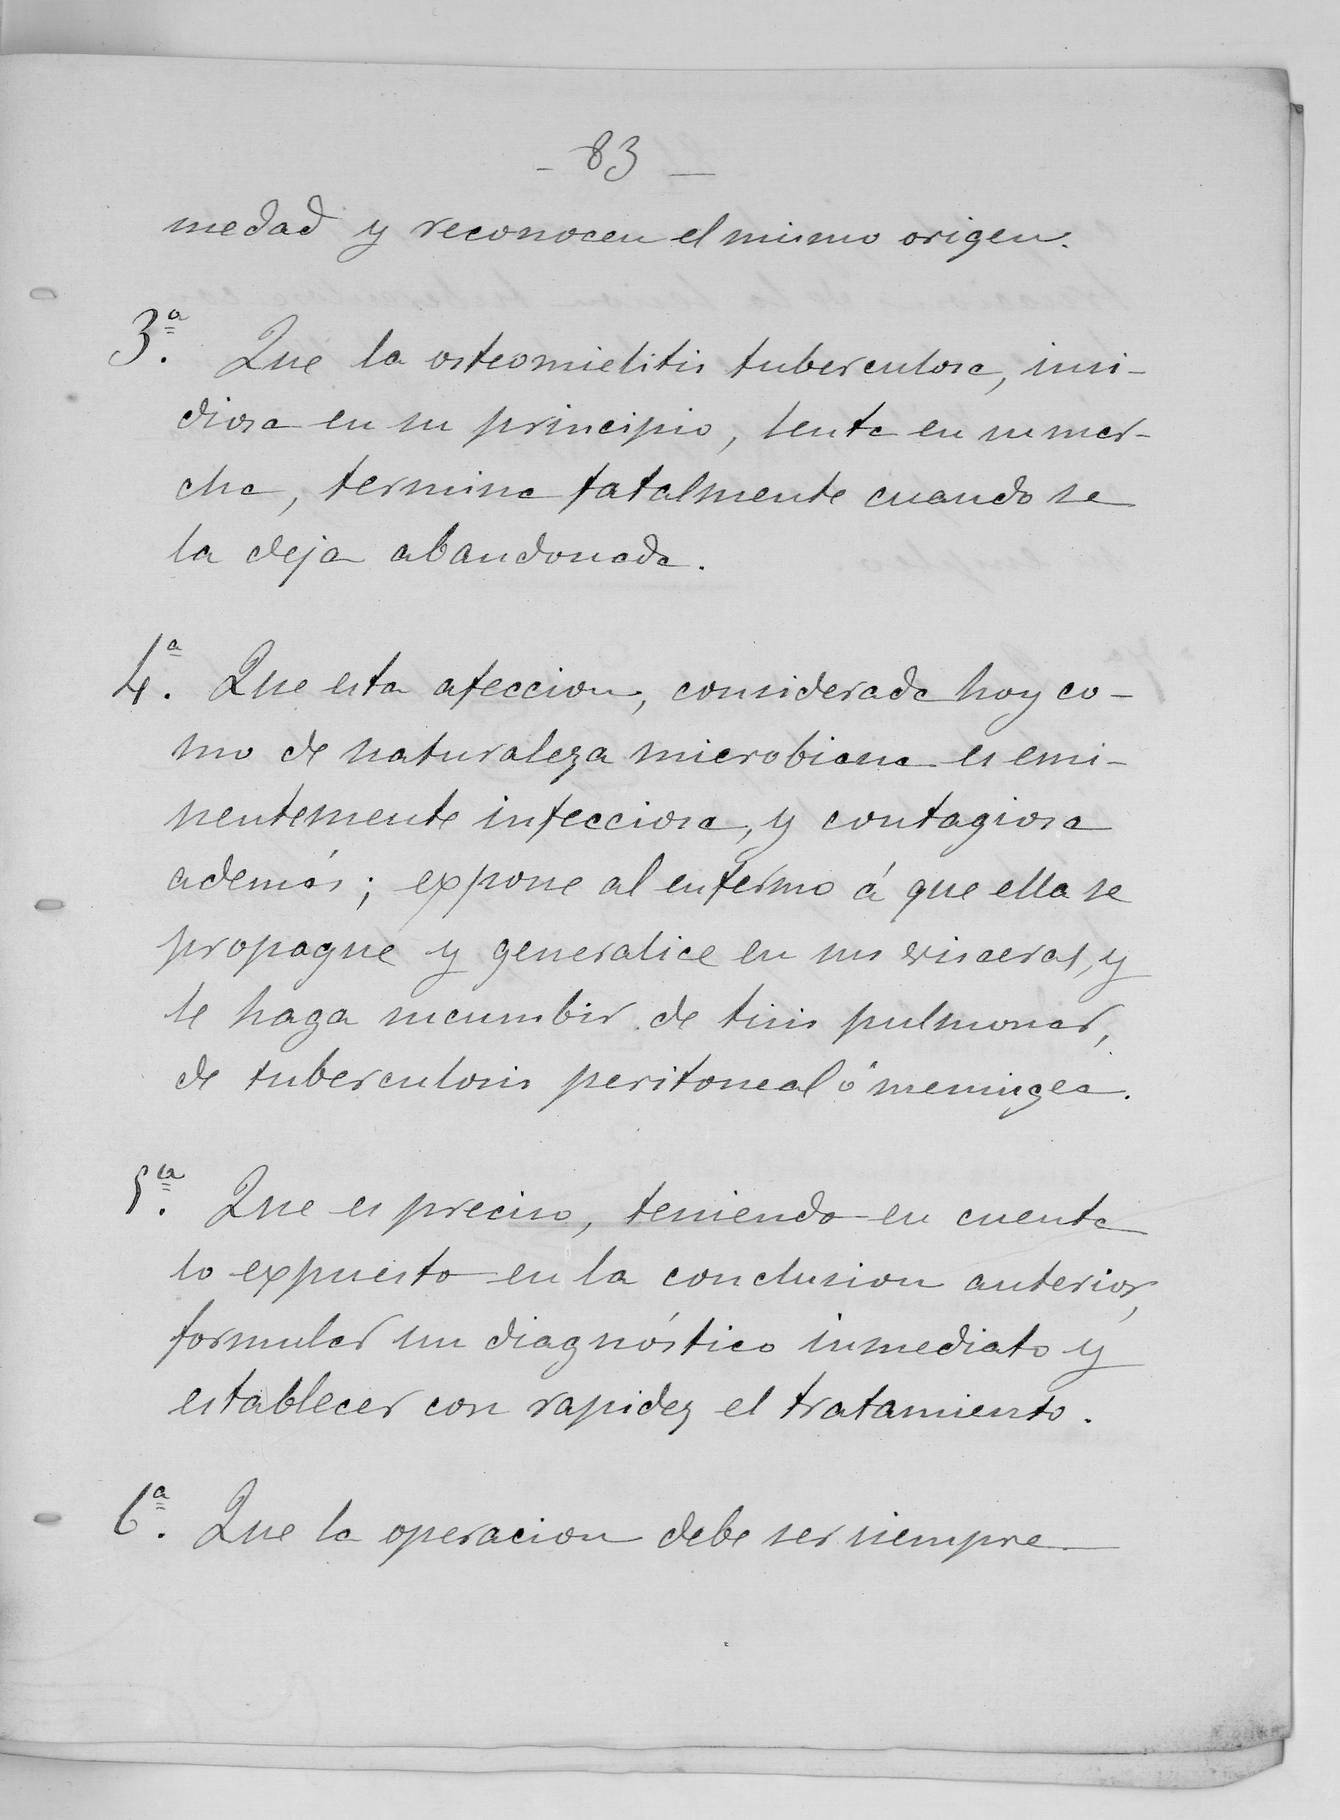 - 83 -
medad y reconocen el mismo origen.
3ª. Que la osteomielitis tuberculosa, insi-
diosa en su principio, lenta en su mar-
cha, termina fatalmente cuando se
la deja abandonada.
4ª. Que esta afeccion, considerada hoy co-
mo de naturaleza microbiana es emi-
nentemente infecciosa, y contagiosa
además; expone al enfermo á que ella se
propague y generalice en sus visceras, y
le haga sucumbir de tisis pulmonar,
de tuberculosis peritoneal ó meningea.
5ª. Que es preciso, teniendo en cuenta
lo expuesto en la conclusion anterior,
formular un diagnóstico inmediato y
establecer con rapidez el tratamiento.
6ª. Que la operacion debe ser siempre